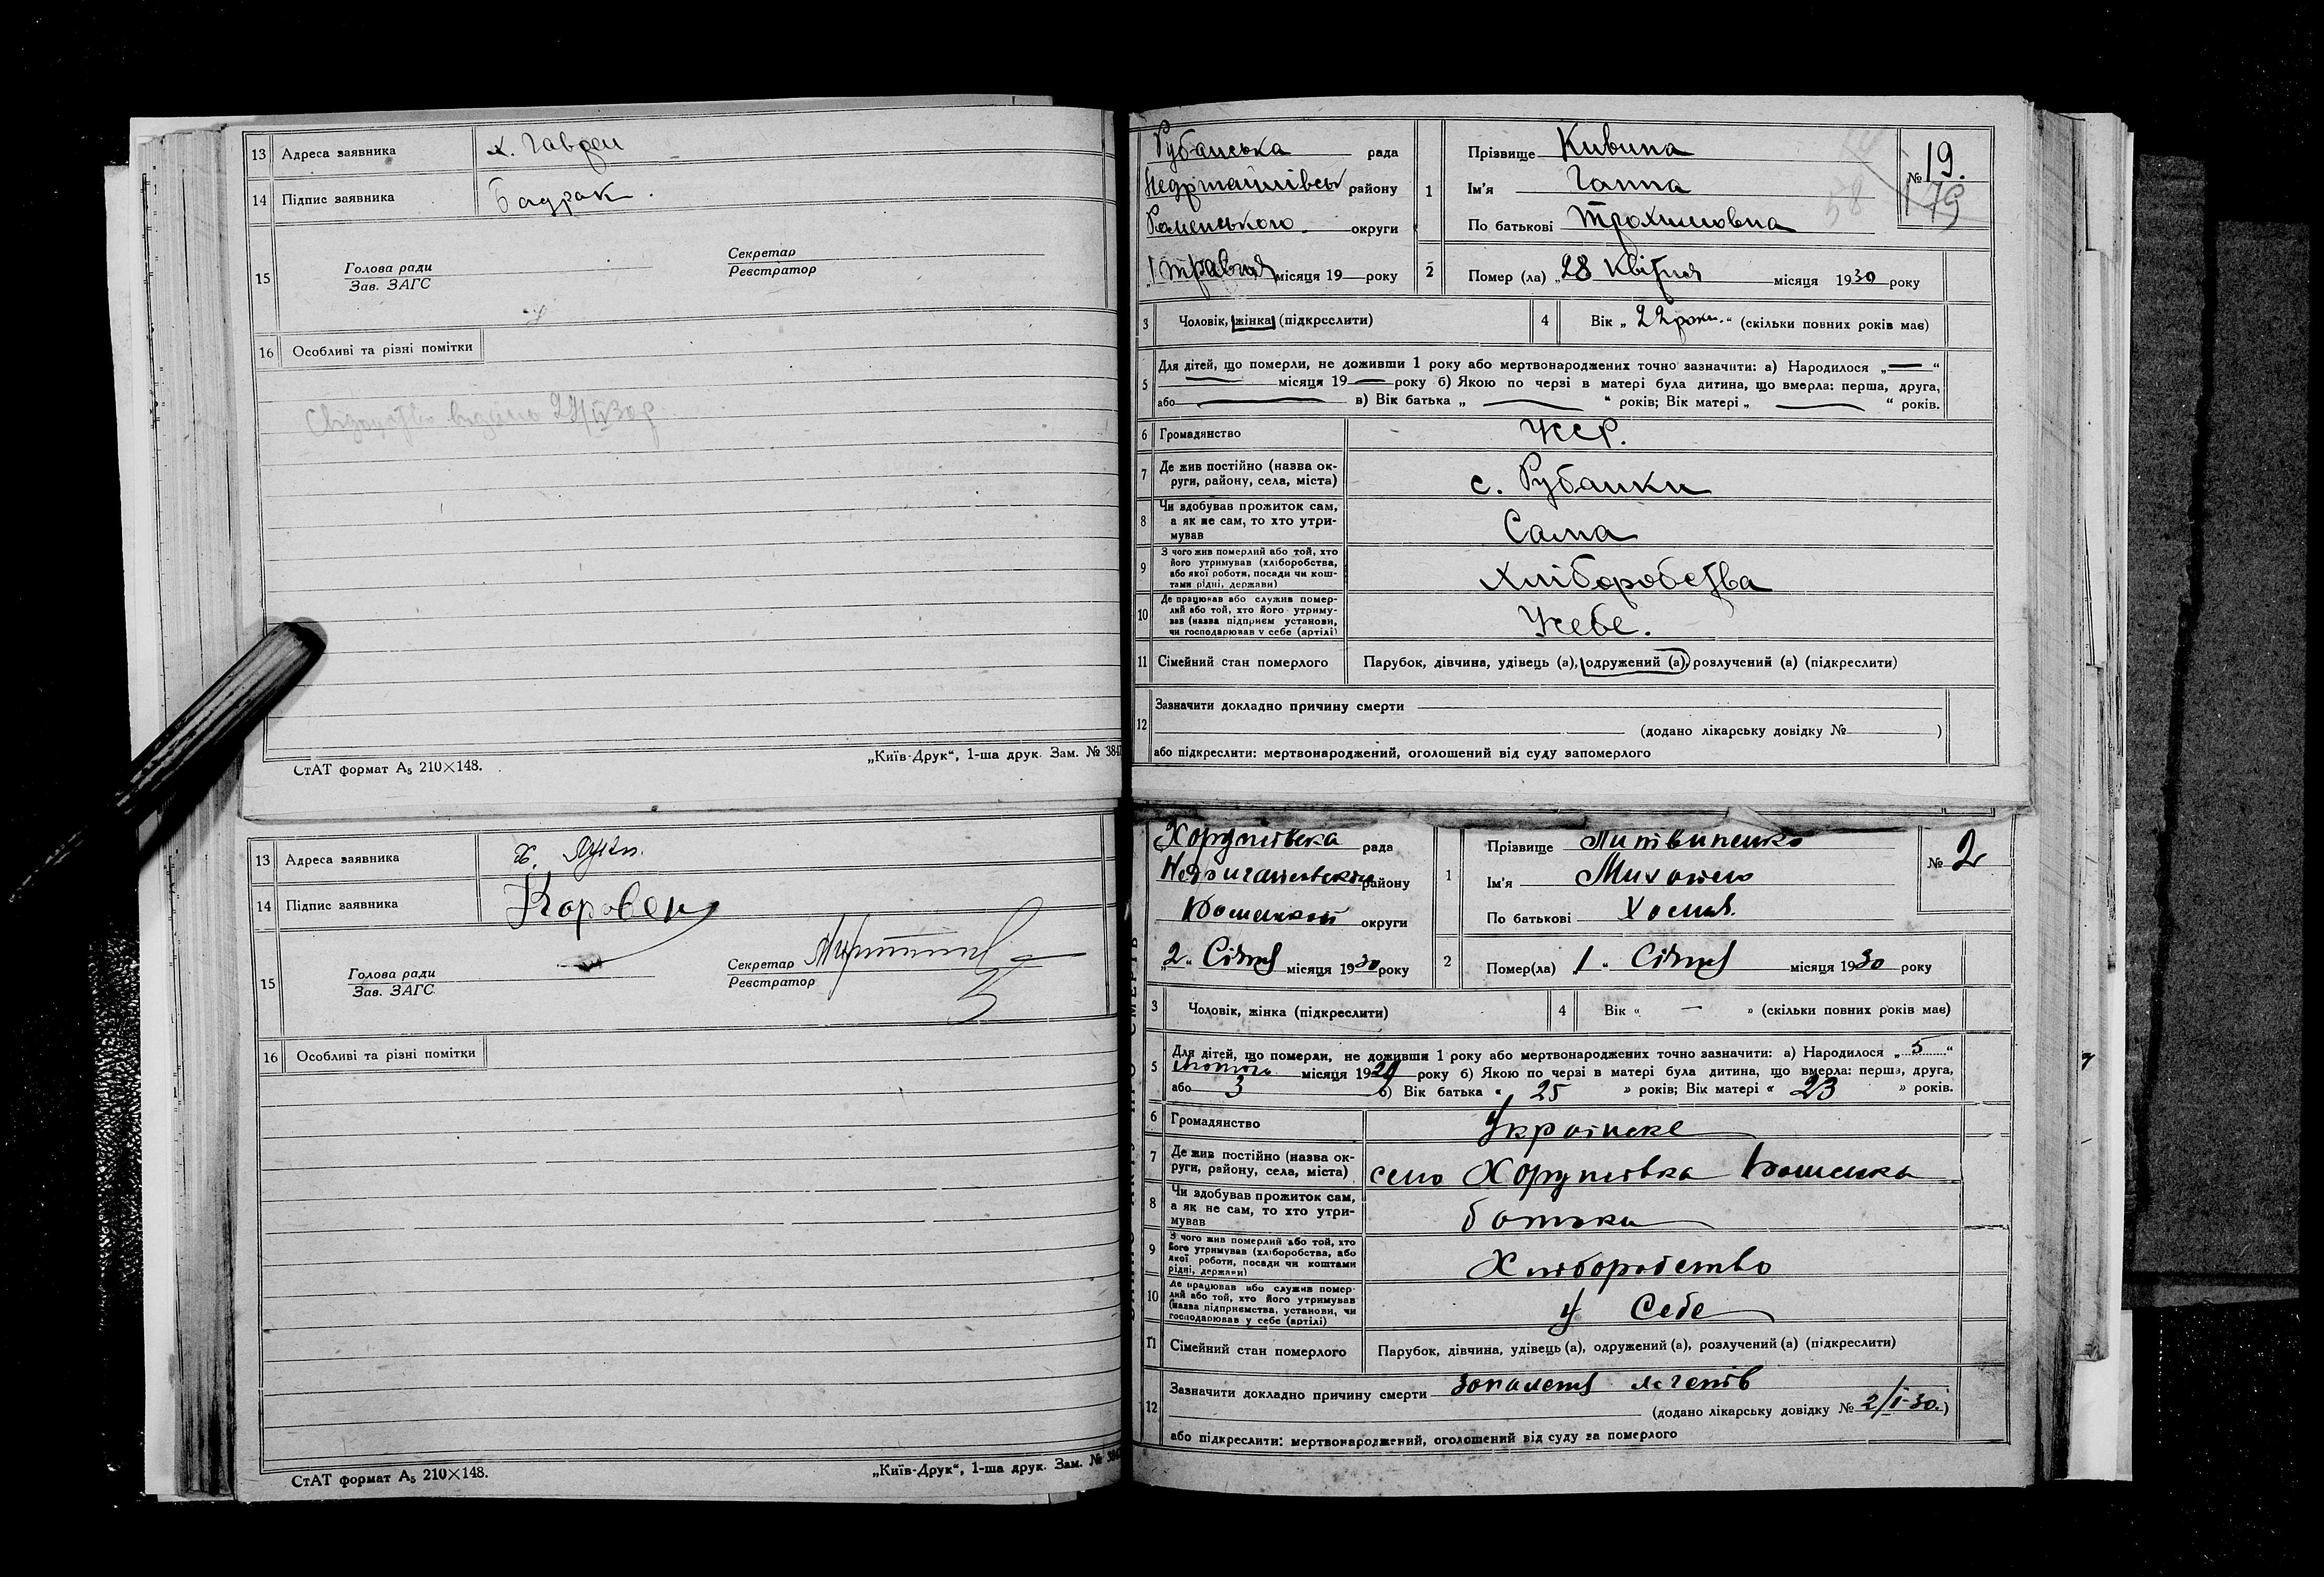 13 Адреса заявника х. Гавдеи
14 Підпис заявника Бадрак
15 Голова ради
Зав. ЗАГС
Секретар
Реєстратор
16 Особливі та різні помітки
СтАТ формат А₅ 210×148.
„Київ-Друк“, 1-ша друк. Зам. № 384
13 Адреса заявника х.
14 Підпис заявника
15 Голова ради
Зав. ЗАГС
Секретар
Реєстратор
16 Особливі та різні помітки
СтАТ формат А₅ 210×148.
„Київ-Друк“, 1-ша друк. Зам. № 384
Рубанська рада
району
Роменського округи
„1 травня місяця 19 року
1 Прізвище Кивина
Ім'я Ганна
По батькові Трохимовна
№ 19.
179
58
2 Помер (ла) „28 Квітня місяця 1930 року
3 Чоловік, жінка (підкреслити)
4 Вік „22 роки.“ (скільки повних років має)
5 Для дітей, що померли, не доживши 1 року або мертвонароджених точно зазначити: а) Народилося „—“
— місяця 19— року б) Якою по черзі в матері була дитина, що вмерла: перша, друга,
або — в) Вік батька „ — “ років; Вік матері „ — “ років.
6 Громадянство УССР.
7 Де жив постійно (назва ок-
руги, району, села, міста) с. Рубанки
8 Чи здобував прожиток сам,
а як не сам, то хто утри-
мував Сама
9 З чого жив померлий або той, хто
його утримував (хліборобства,
або якої роботи, посади чи кош-
тами рідні, держави) Хліборобства
10 Де працював або служив помер-
лий або той, хто його утриму-
вав (назва підприєм установи,
чи господарював у себе (артілі) Усебе.
11 Сімейний стан померлого Парубок, дівчина, удівець (а), одружений (а), розлучений (а) (підкреслити)
12 Зазначити докладно причину смерти
(додано лікарську довідку № )
або підкреслити: мертвонароджений, оголошений від суду запомерлого
Хорунівска рада
району
округи
„2“ Січня місяця 1930 року
1 Прізвище Литвиненко
Ім'я
По батькові
№ 2
2 Помер(ла) „1“ Січня місяця 1930 року
3 Чоловік, жінка (підкреслити)
4 Вік « — » (скільки повних років має)
5 Для дітей, що померли, не доживши 1 року або мертвонароджених точно зазначити: а) Народилося „5“
місяця 1929 року б) Якою по черзі в матері була дитина, що вмерла: перша, друга,
або 3 в) Вік батька « 25 » років; Вік матері « 23 » років.
6 Громадянство Українске
7 Де жив постійно (назва ок-
руги, району, села, міста) село Хорунівка
8 Чи здобував прожиток сам,
а як не сам, то хто утри-
мував батьки
9 З чого жив померлий або той, хто
його утримував (хліборобства, або
якої роботи, посади чи коштами
рідні, держави) Хліборобство
10 Де працював або служив помер-
лий або той, хто його утримував
(назва підприємства, установи, чи
господарював у себе (артілі) у Себе
11 Сімейний стан померлого Парубок, дівчина, удівець (а), одружений (а), розлучений (а) (підкреслити)
12 Зазначити докладно причину смерти запаленя легенів
(додано лікарську довідку № 2/I-30.)
або підкреслити: мертвонароджений, оголошений від суду за померлого